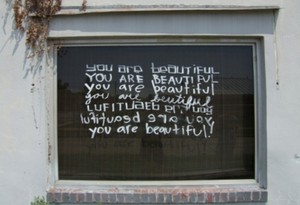 you are beautiful
YOU ARE BEAUTIFUL
you are beautiful
you are beautiful
LUFITUAEB ERA UOY
you are beautiful
you are beautiful!